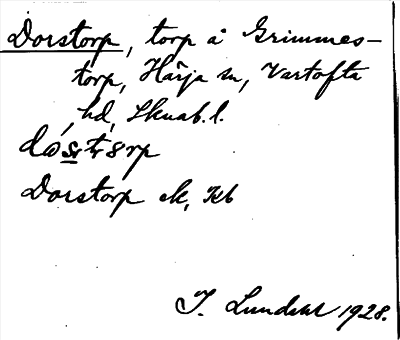 Dorstorp, torp å Grimmes-
torp, Härja sn, Vartofta
hd, Skarab. l.
Dorstorp ek, Kb
J. Lundahl 1928.